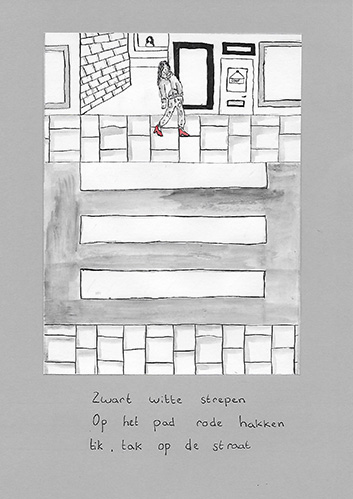 Zwart witte strepen
Op het pad rode hakken
tik, tak op de straat